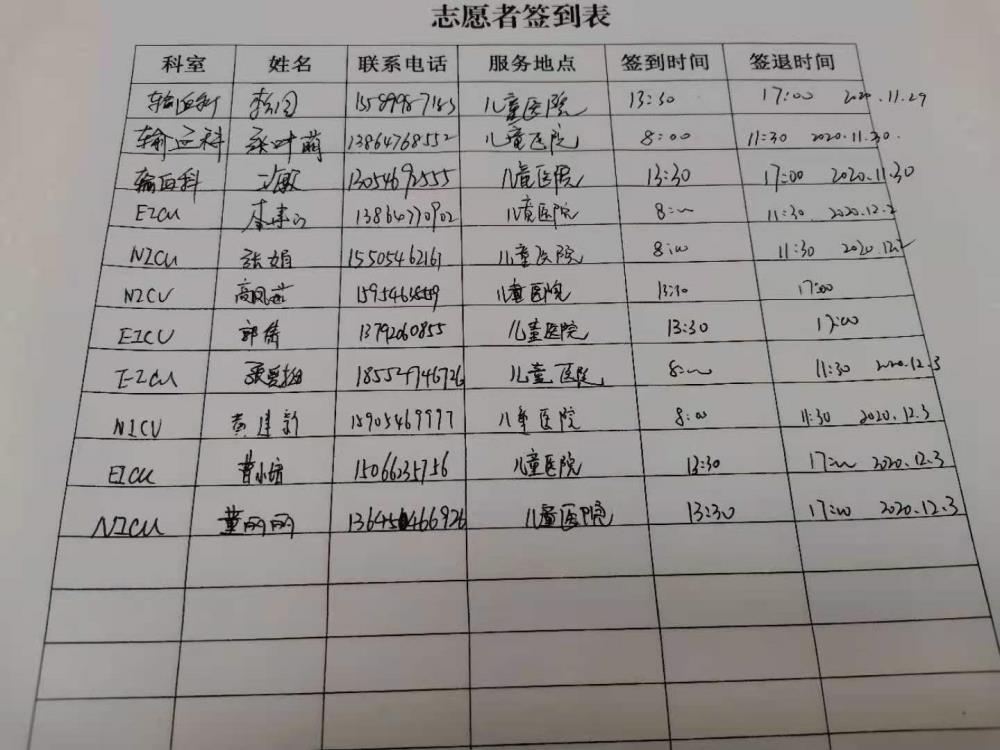 志愿者签到表
科室 姓名 联系电话 服务地点 签到时间 签退时间
输血科 儿童医院 13:30 17:00 2020.11.29
输血科 张叶萌 13864768552 儿童医院 8:00 11:30 2020.11.30.
输血科 13054692555 儿童医院 13:30 17:00 2020.11.30
EICU 13864770902 儿童医院 8:00 11:30 2020.12.2
NICU 张娟 15505462161 儿童医院 8:00 11:30 2020.12.2
NICU 儿童医院 13:30 17:00
EICU 郭倩 13792060855 儿童医院 13:30 17:00
EICU 18554746726 儿童医院 8:00 11:30 2020.12.3
NICU 黄建新 15905469997 儿童医院 8:00 11:30 2020.12.3
EICU 15066235756 儿童医院 13:30 17:00 2020.12.3
NICU 董丽丽 儿童医院 13:30 17:00 2020.12.3